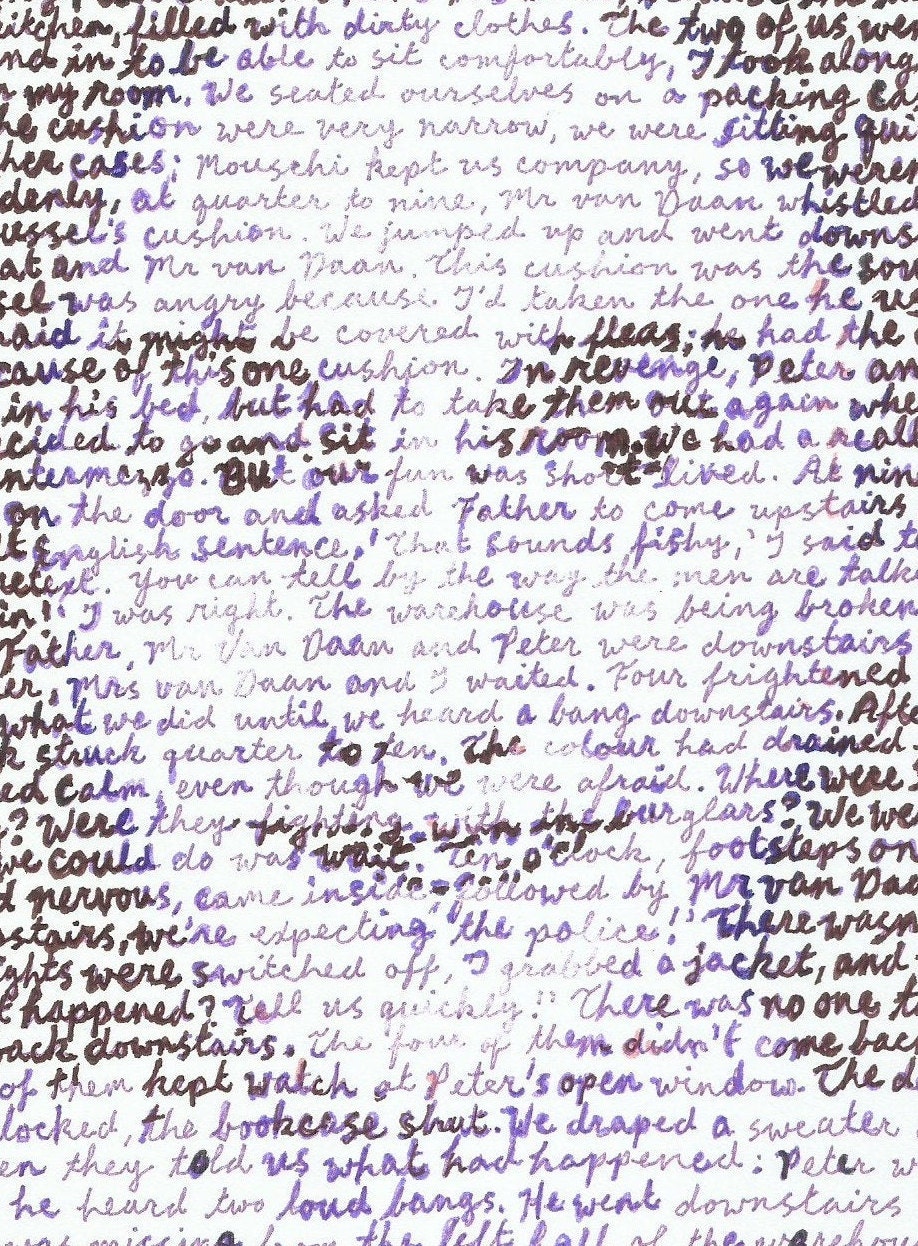 itchen, filled with dirty clothes. The two of us were
nd in to be able to sit comfortably, I took along
my room. We seated ourselves on a packing ca
he cushion were very narrow, we were sitting qui
her cases; Mouschi kept us company, so we weren
denly, at quarter to nine, Mr van Daan whistled
ussel's cushion. We jumped up and went downs
at and Mr van Daan. This cushion was the sou
sel was angry because I'd taken the one he us
aid it might be covered with fleas; he had the
cause of this one cushion. In revenge, Peter an
in his bed, but had to take them out again whe
cided to go and sit in his room. We had a reall
ntermezzo. But our fun was short-lived. At nin
on the door and asked Father to come upstairs
lt English sentence. 'That sounds fishy,' I said to
retext. You can tell by the way the men are talk
in!' I was right. The warehouse was being broken
Father, Mr Van Daan and Peter were downstairs
er, Mrs van Daan and I waited. Four frightened
what we did until we heard a bang downstairs. Aft
k struck quarter to ten. The colour had drained
ed calm, even though we were afraid. Where were
? Were they fighting with the burglars? We we
we could do was wait. Ten o'clock, footsteps on
d nervous, came inside, followed by Mr van Daa
stairs, we're expecting the police!' There wasn
ghts were switched off, I grabbed a jacket, and
t happened? Tell us quickly!' There was no one t
back downstairs. The four of them didn't come back
of them kept watch at Peter's open window. The d
locked, the bookcase shut. We draped a sweater
en they told us what had happened: Peter w
he heard two loud bangs. He went downstairs
was missing from the left half of the warehou